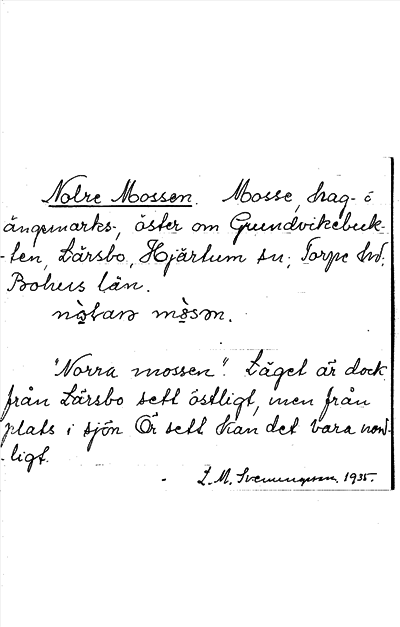 Nolre Mossen. Mosse, hag- o
ängsmarks-, öster om Grundviksbuk-
-ten, Lärsbo, Hjärtum sn; Torpe hd;
Bohus län.

"Norra mossen". Läget är dock
från Lärsbo sett östligt, men från
plats i sjön Ör sett kan det vara nord-
-ligt.
L. M. Svenungsson. 1935.